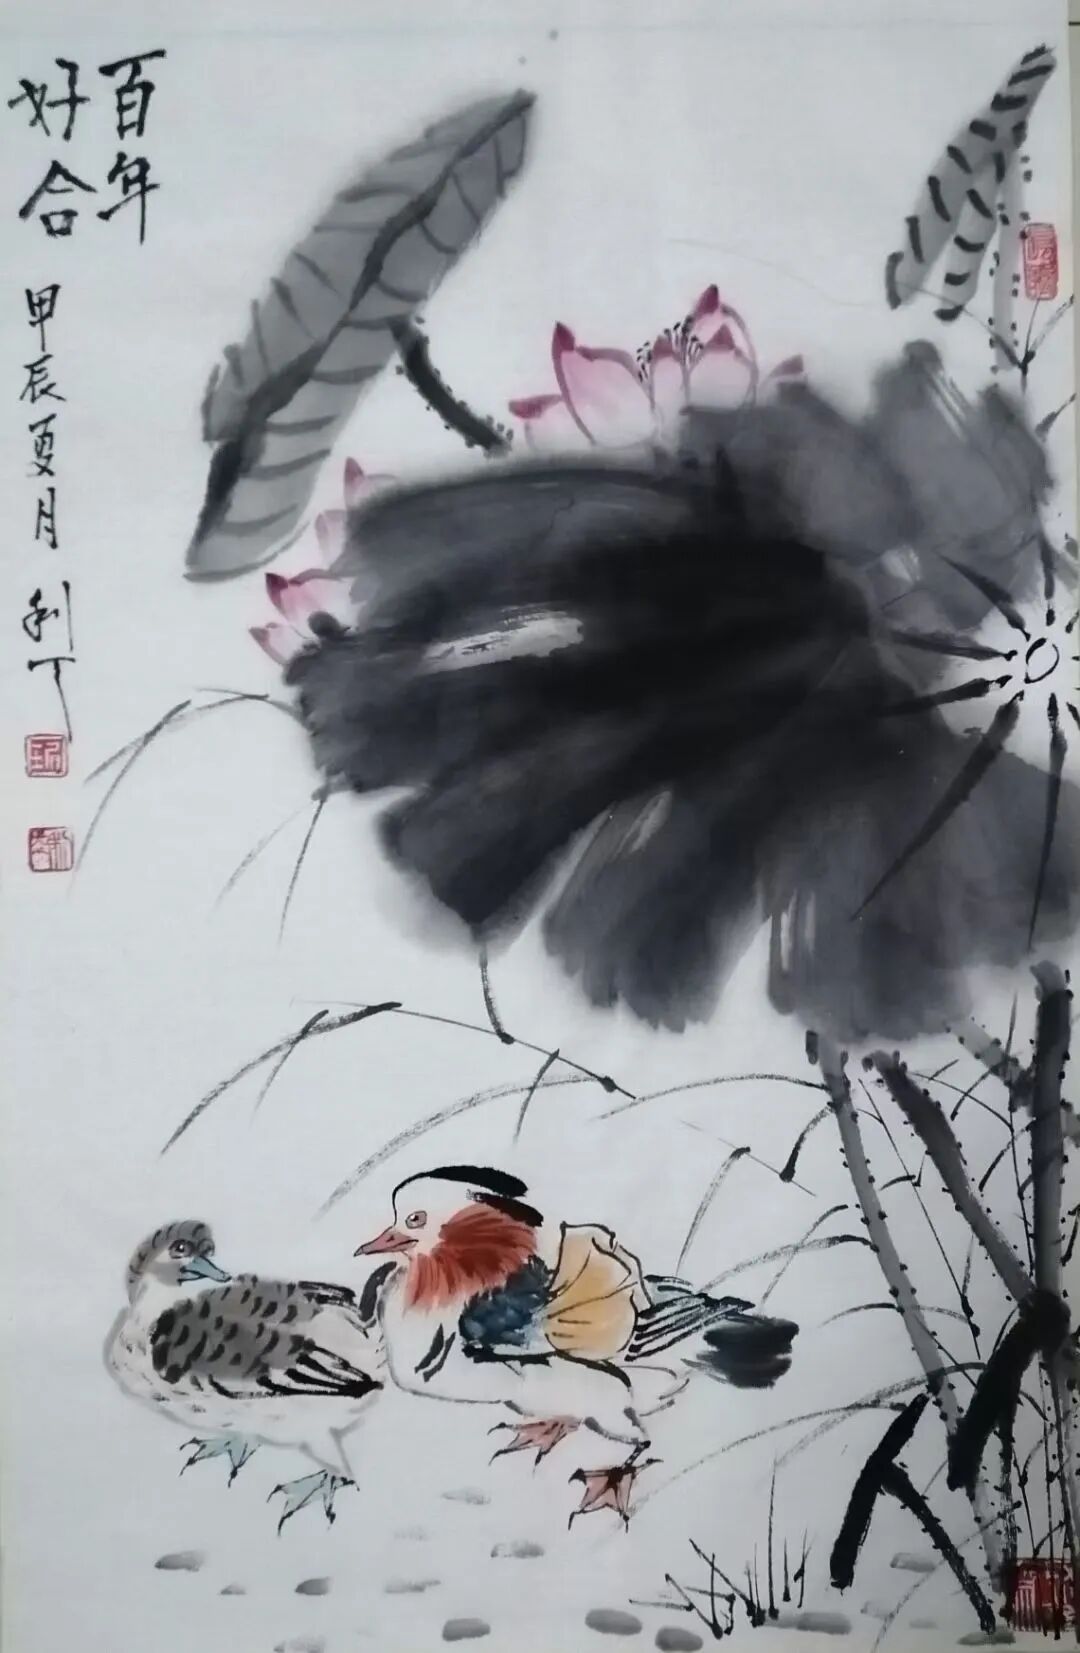 百年
好合
甲辰夏月 利丁